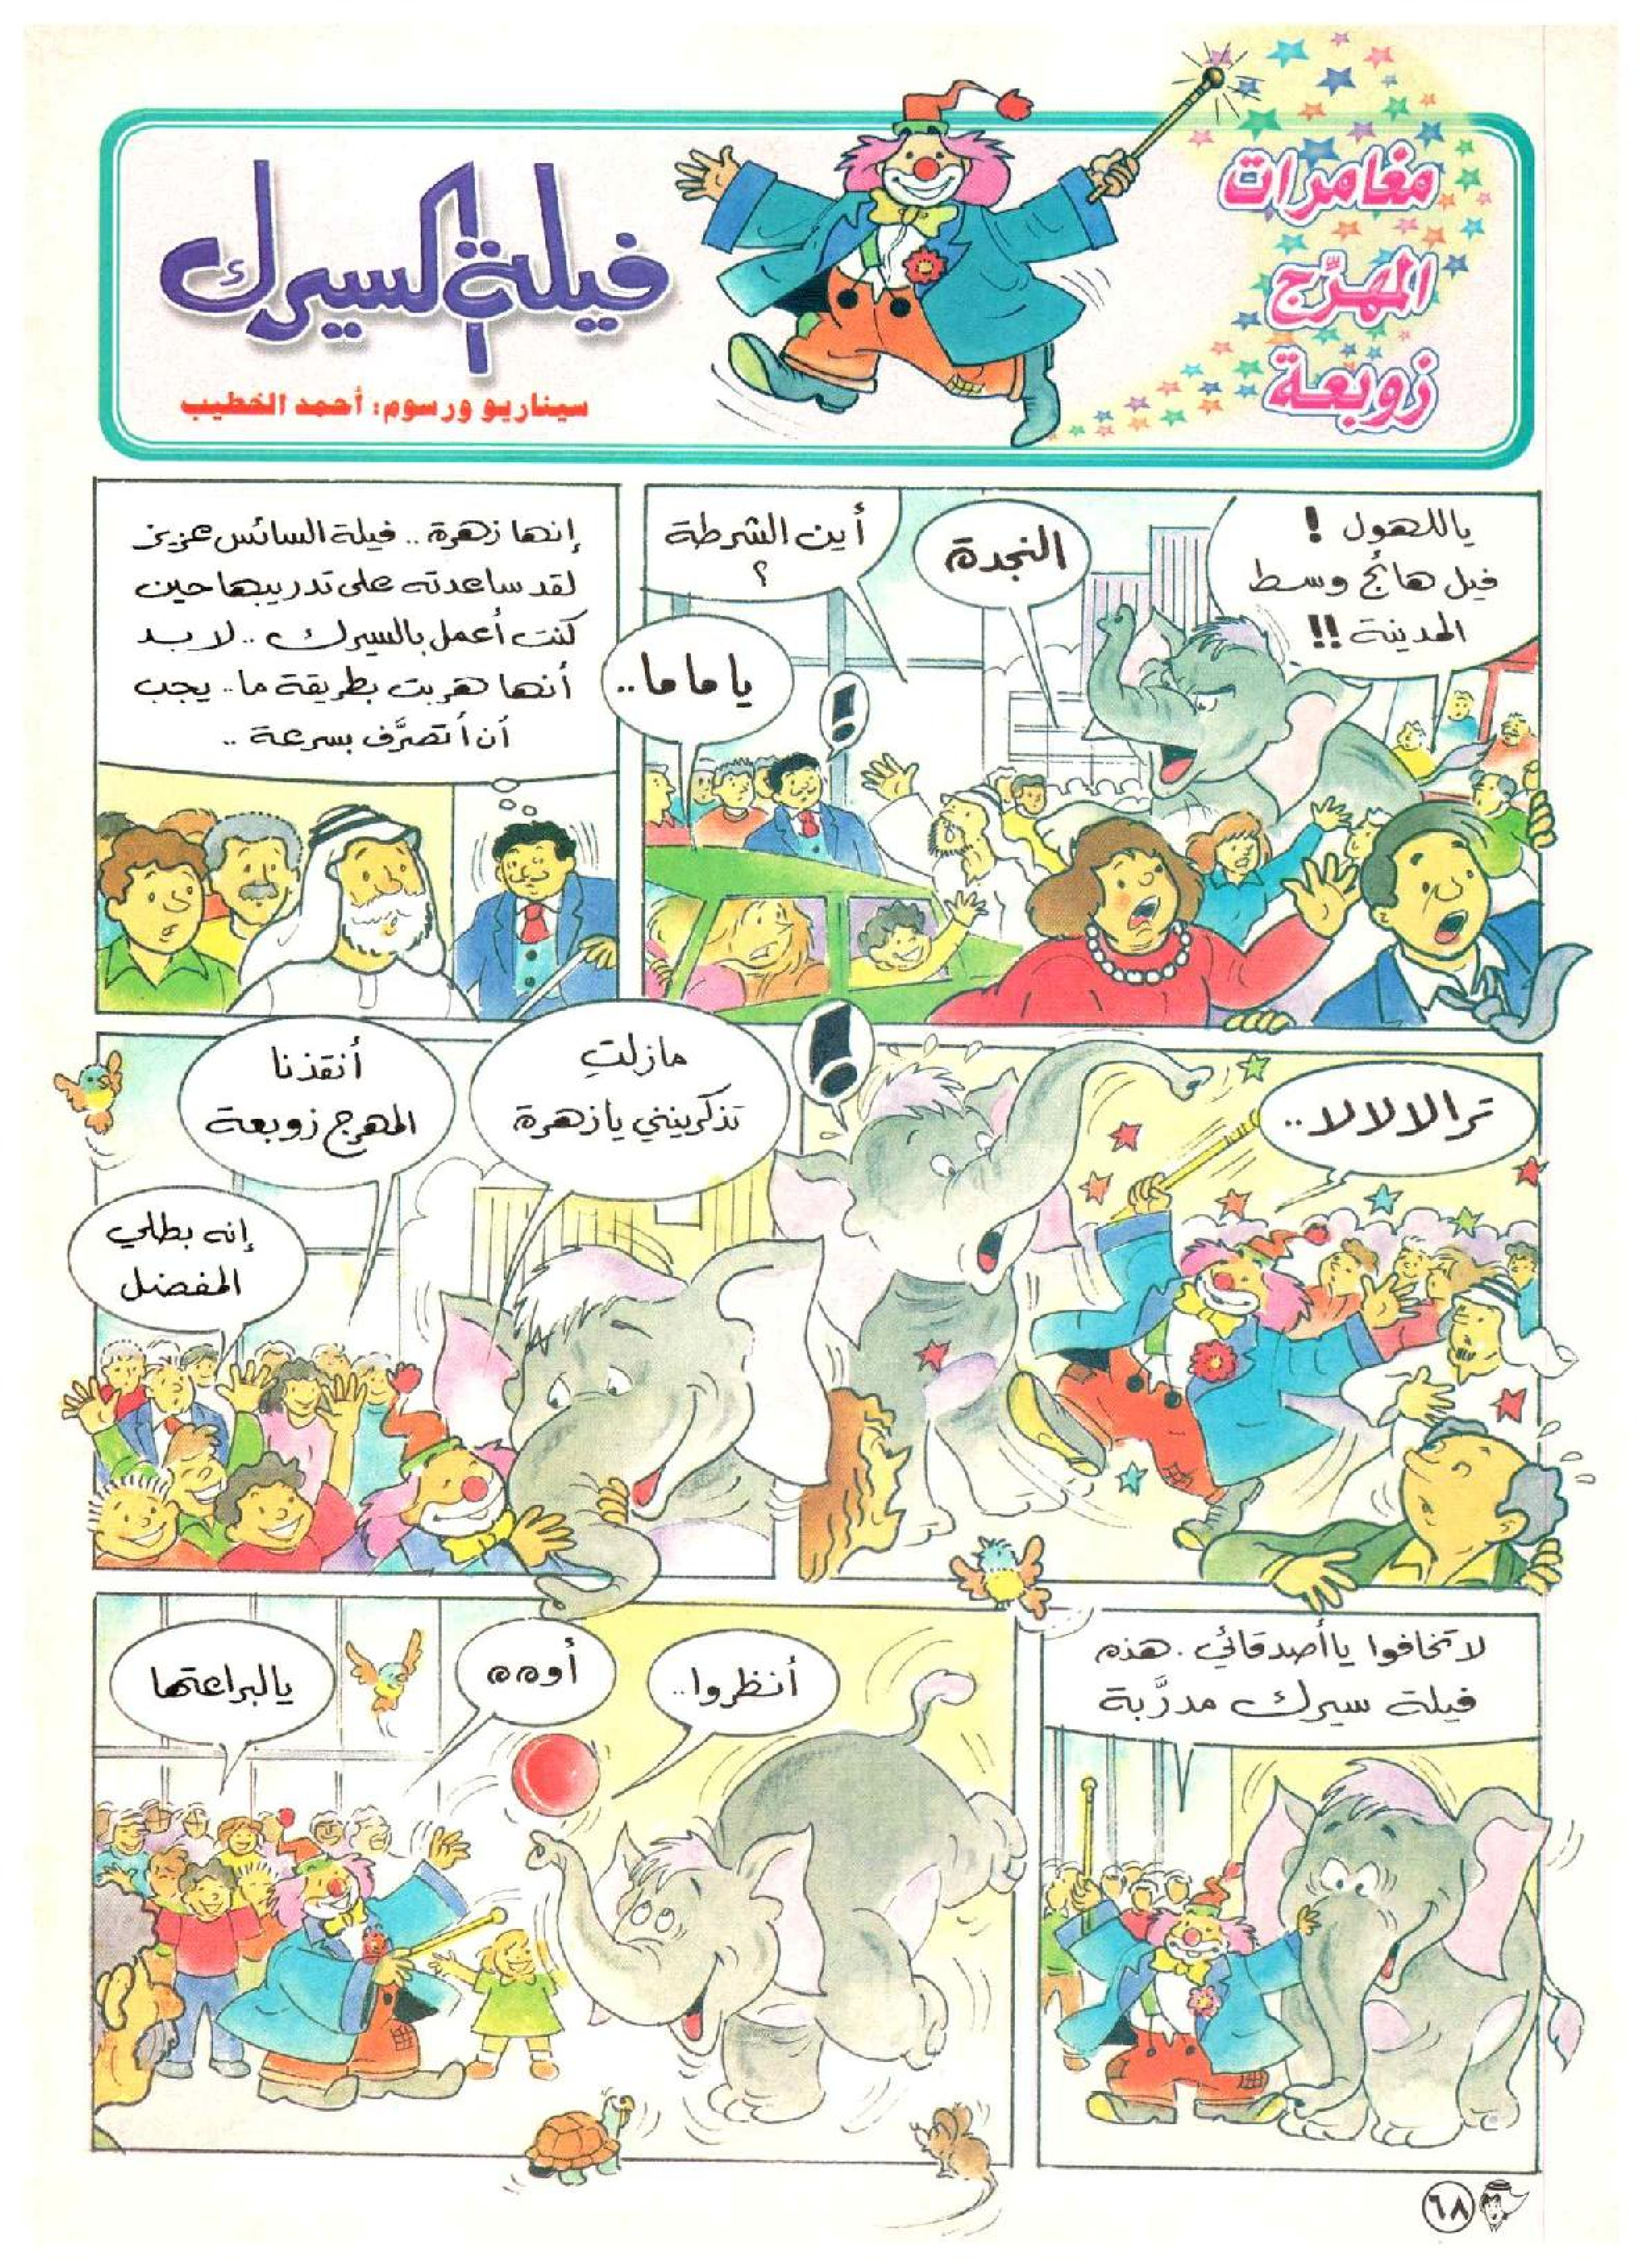 مغامرات
المهرَّج
زوبعة
فيلة السيرك
سيناريو ورسوم: أحمد الخطيب
ياللهول !
فيل هائج وسط
المدينة !!
النجدة
أين الشرطة
؟
ياماما..
!
إنها زهرة .. فيلة السائس عزيز
لقد ساعدته على تدريبها حين
كنت أعمل بالسيرك .. لابد
أنها هربت بطريقة ما.. يجب
أن أتصرَّف بسرعة ..
ترالالالا..
!
مازلتِ
تذكرينني يازهرة
أنقذنا
المهرج زوبعة
إنه بطلي
المفضل
لاتخافوا ياأصدقائي . هذه
فيلة سيرك مدرَّبة
أنظروا..
أوهه
يالبراعتها
٦٨